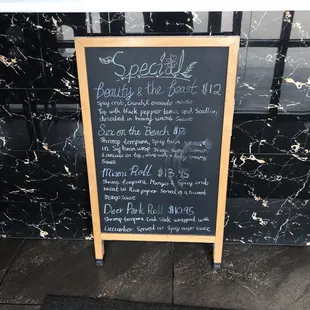 Specials
Beauty & the Beast $12
Spicy crab, Crunch, avocado inside
Top with black pepper tuna and Scallion,
drizzled in honey wasabi Sauce
Sex on the Beach $13
Shrimp tempura, Spicy tuna
in Soy bean wrap
avocado on top, along with a Spicy creamy
Sauce
Miami Roll $13.95
Shrimp tempura, Mango & Spicy crab
meat w/ Rice paper Served in a sweet
Mango Sauce
Deer Park Roll $10.95
Shrimp tempura Crab Stick wrapped with
Cucumber Served w/ Spicy mayo Sauce